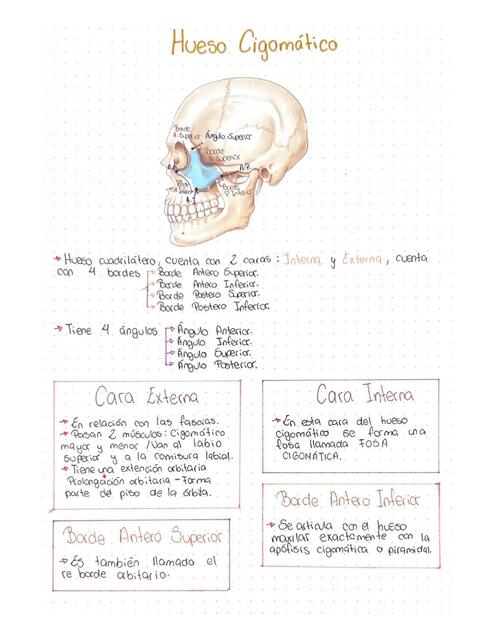 Hueso Cigomático
Borde
A. Superior
Ángulo Superior
Borde
P. Superior
A.P.
Borde
P. Inferior
Borde
A.I.
→ Hueso cuadrilátero, cuenta con 2 caras: Interna y Externa, cuenta
con 4 bordes
→ Borde Antero Superior.
→ Borde Antero Inferior.
→ Borde Postero Superior.
→ Borde Postero Inferior.
→ Tiene 4 ángulos
→ Ángulo Anterior.
→ Ángulo Inferior.
→ Ángulo Superior.
→ Ángulo Posterior.
Cara Externa
→ En relación con las fascias.
→ Pasan 2 músculos: Cigomático
mayor y menor /Van al labio
superior y a la comisura labial.
→ Tiene una extención orbitaria
Prolongación orbitaria - Forma
parte del piso de la órbita.
Cara Interna
→ En esta cara del hueso
cigomático se forma una
fosa llamada FOSA
CIGONÁTICA.
Borde Antero Superior
→ Es también llamado el
re borde orbitario.
Borde Antero Inferior
→ Se articula con el hueso
maxilar exactamente con la
apófisis cigomática o piramidal.